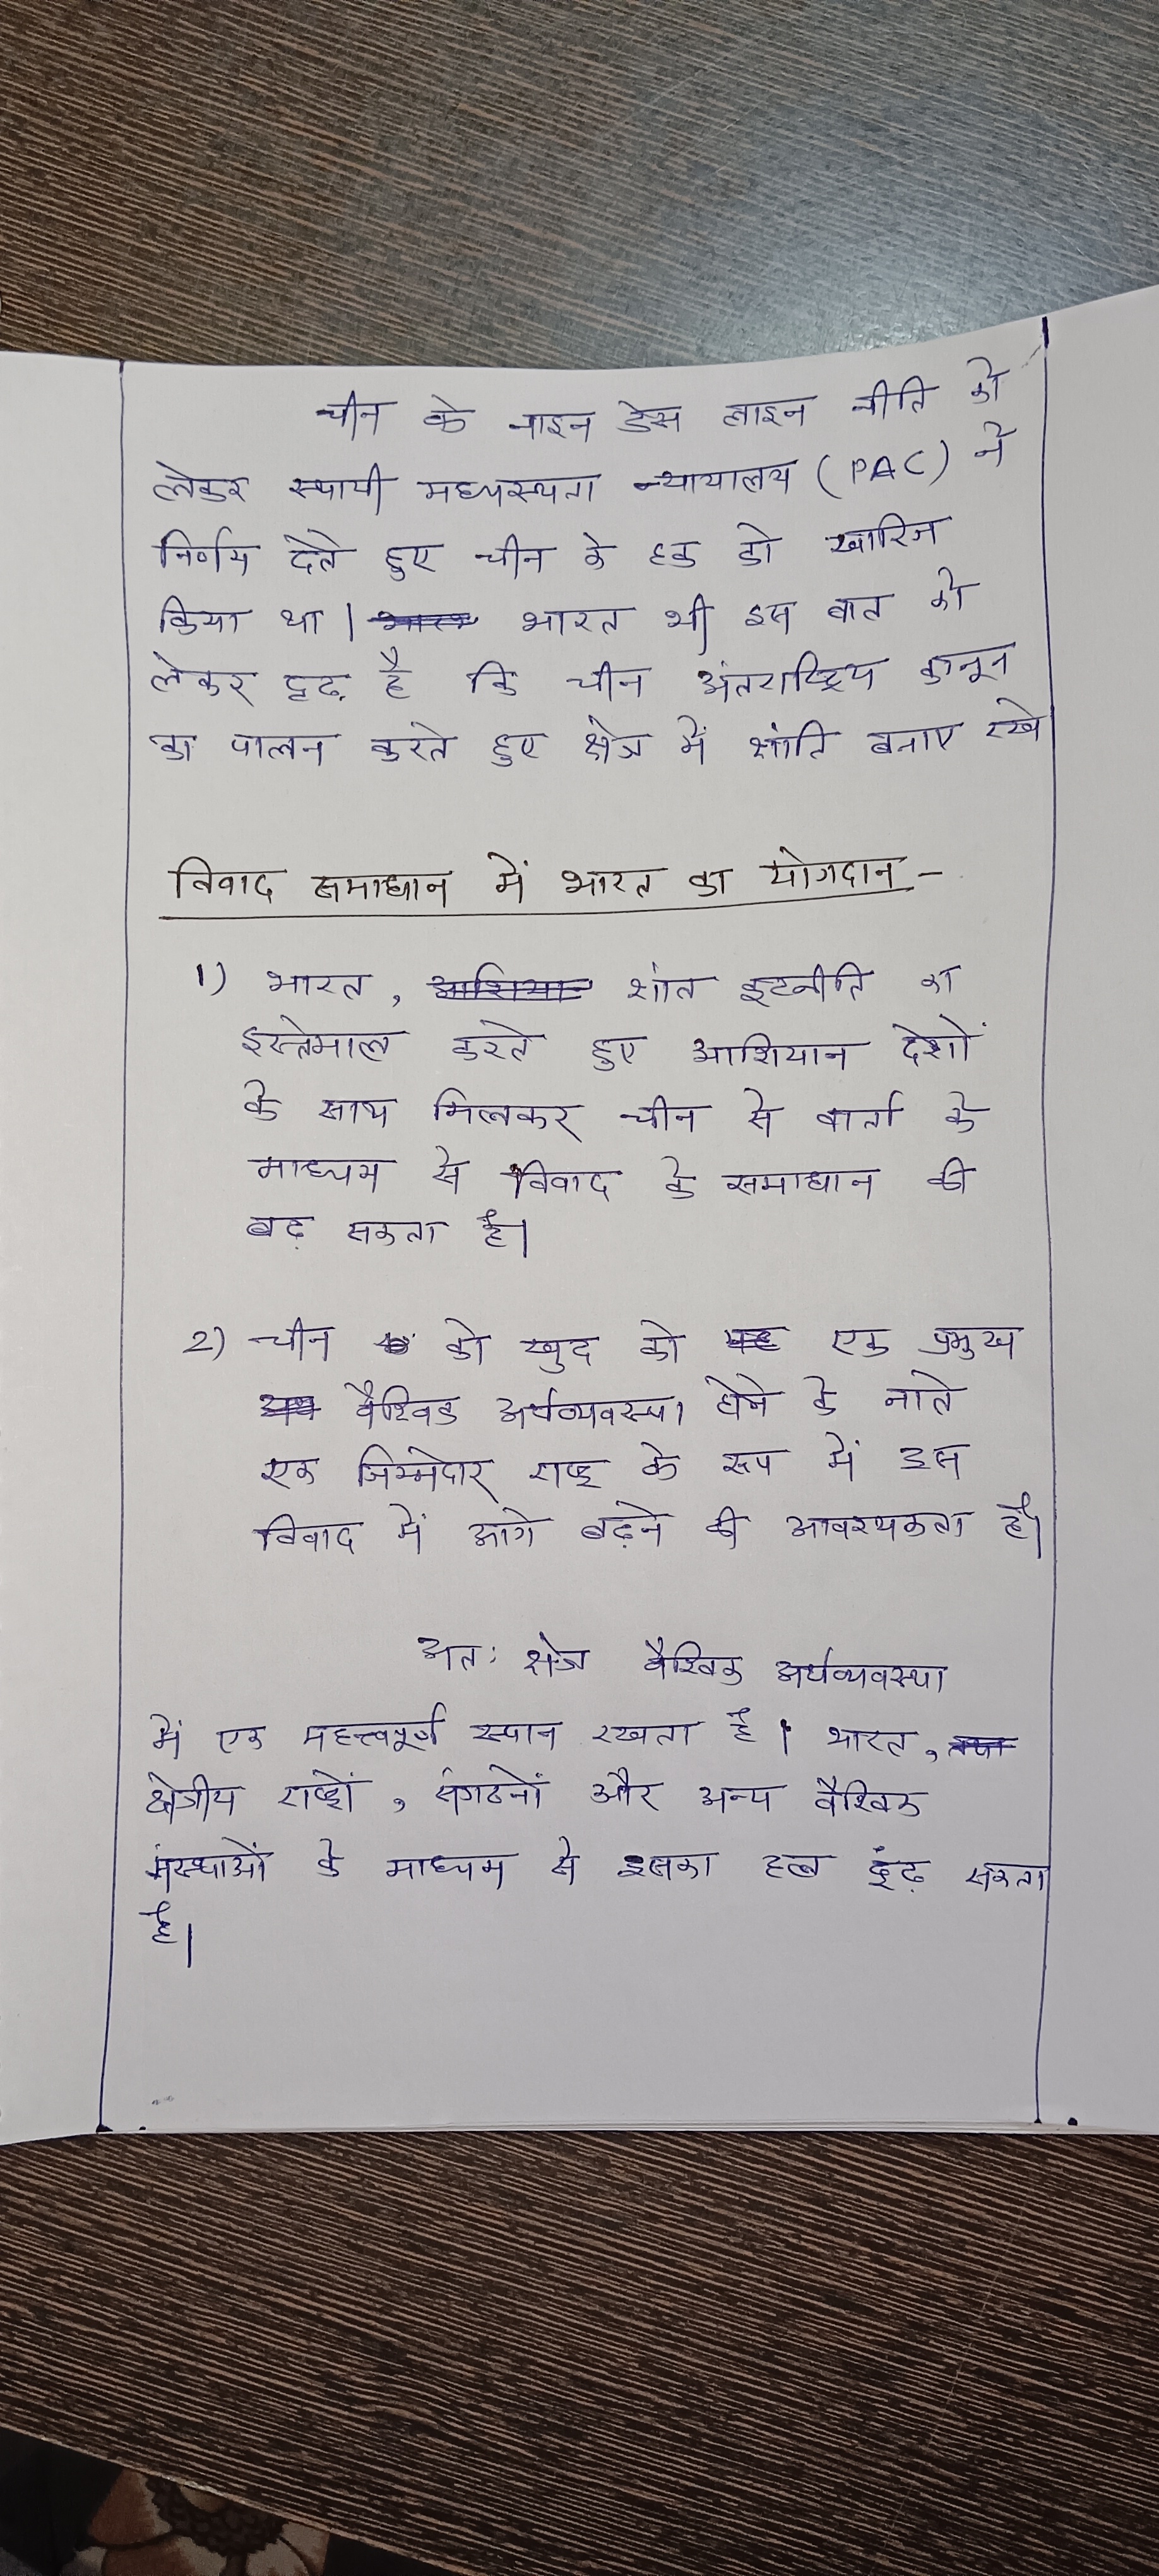 चीन के नाइन डेस लाइन नीति को
लेकर स्थायी मध्यस्थता न्यायालय (PAC) ने
निर्णय देते हुए चीन के हक को खारिज
किया था। भारत भी इस बात को
लेकर दृढ़ है कि चीन अंतराष्ट्रिय कानून
का पालन करते हुए क्षेत्र में शांति बनाए रखे
विवाद समाधान में भारत का योगदान -
1) भारत, शांत कुटनीति का
इस्तेमाल करते हुए आशियान देशों
के साथ मिलकर चीन से वार्ता के
माध्यम से विवाद के समाधान की
बढ़ सकता है।
2) चीन को खुद को एक प्रमुख
वैश्विक अर्थव्यवस्था होने के नाते
एक जिम्मेदार राष्ट्र के रूप में इस
विवाद में आगे बढ़ने की आवश्यकता है।
अतः क्षेत्र वैश्विक अर्थव्यवस्था
में एक महत्त्वपूर्ण स्थान रखता है। भारत,
क्षेत्रीय राष्ट्रों, संगठनों और अन्य वैश्विक
संस्थाओं के माध्यम से इसका हल ढूंढ़ सकता
है।